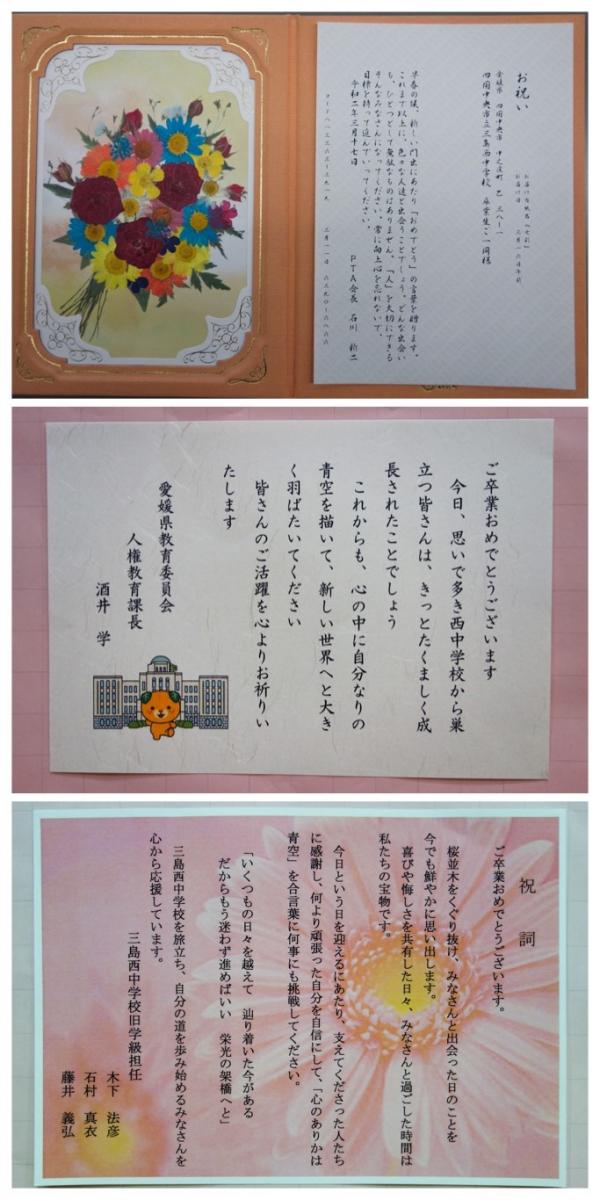 お祝い
愛媛県 四国中央市 中之庄町 乙 三八ー一
四国中央市立三島西中学校 卒業生ご一同様
早春の候、新しい門出にあたり「おめでとう」の言葉を贈ります。
これまで以上に、色々な人達と出会うことでしょう。どんな出会い
も、ひとつとして無駄なものはありません。「人」を大切にできる
そんなみなさんになってください。常に向上心を忘れないで、
目標を持って進んでいってください。
令和二年三月十七日
PTA会長 石川
ご卒業おめでとうございます
今日、思いで多き西中学校から巣
立つ皆さんは、きっとたくましく成
長されたことでしょう
これからも、心の中に自分なりの
青空を描いて、新しい世界へと大き
く羽ばたいてください
皆さんのご活躍を心よりお祈りい
たします
愛媛県教育委員会
人権教育課長
酒井 学
祝 詞
ご卒業おめでとうございます。
桜並木をくぐり抜け、みなさんと出会った日のことを
今でも鮮やかに思い出します。
喜びや悔しさを共有した日々、みなさんと過ごした時間は
私たちの宝物です。
今日という日を迎えるにあたり、支えてくださった人たち
に感謝し、何より頑張った自分を自信にして、「心のありかは
青空」を合言葉に何事にも挑戦してください。
「いくつもの日々を越えて 辿り着いた今がある
だからもう迷わず進めばいい 栄光の架橋へと」
三島西中学校を旅立ち、自分の道を歩み始めるみなさんを
心から応援しています。
三島西中学校旧学級担任
木下 法彦
石村 真衣
藤井 義弘